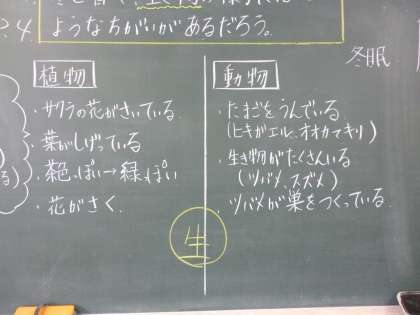 24
ような ちがいが あるだろう。
冬眠
植物
・サクラの花がさいている。
・葉がしげっている
・茶色っぽい→緑っぽい
・花がさく。
動物
・たまごをうんでいる
(ヒキガエル、オオカマキリ)
・生き物がたくさんいる
(ツバメ、スズメ)
・ツバメが巣をつくっている。
生